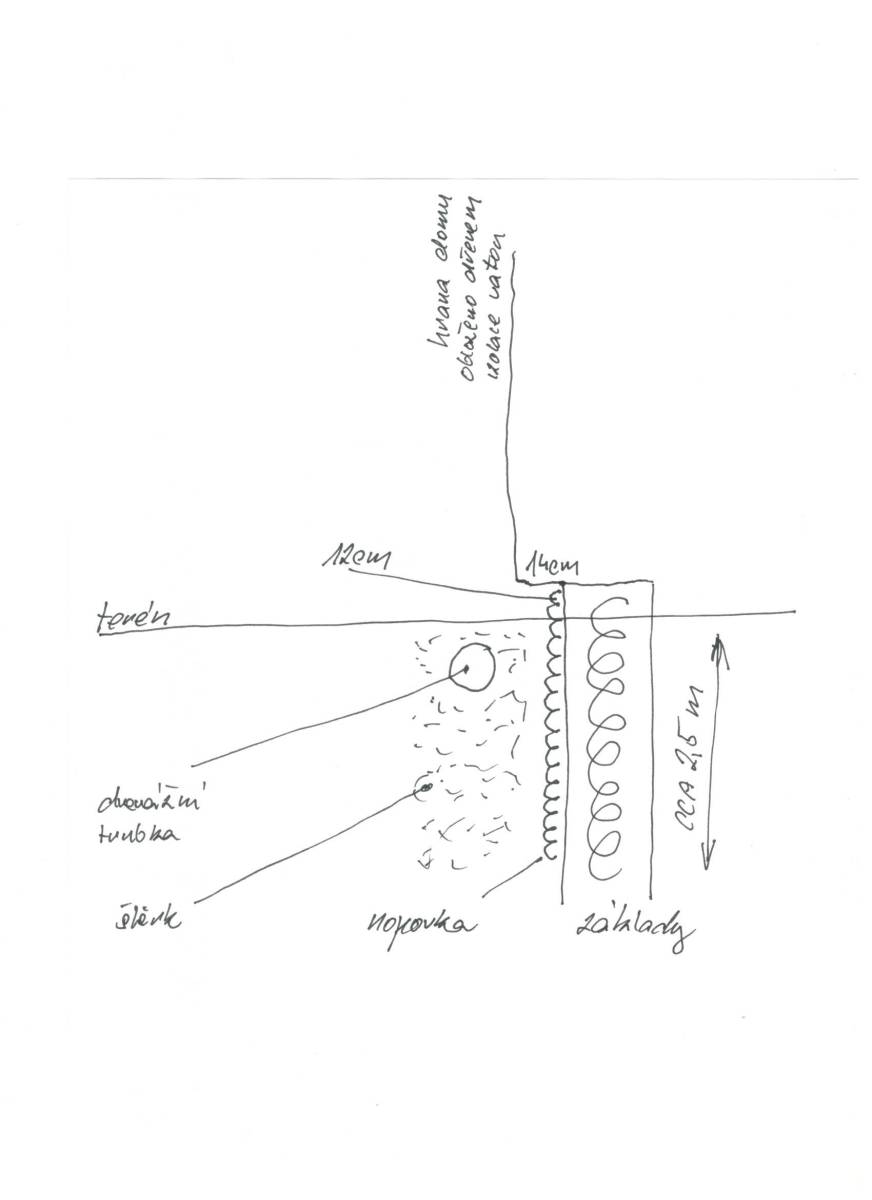 hrana domu
obloženo dřevem
izolace vatou
12cm
14cm
terén
CCA 2,5 m
drenážní
trubka
štěrk
nopovka
základy